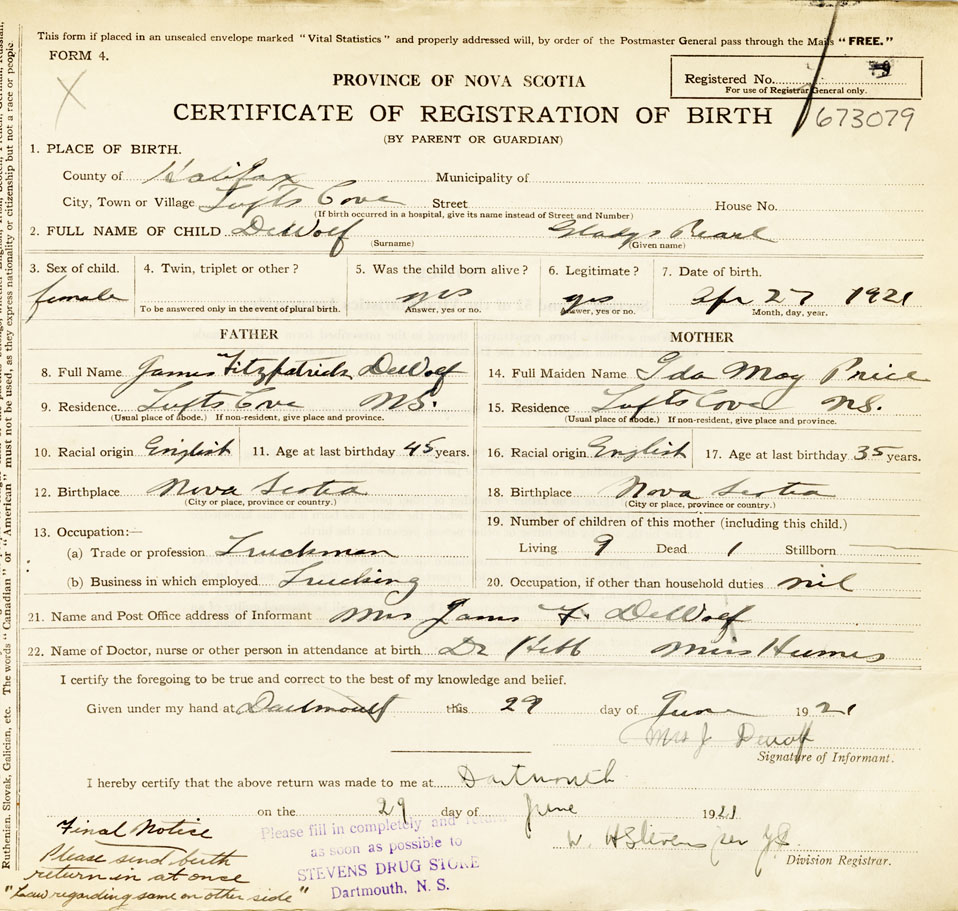 This form if placed in an unsealed envelope marked "Vital Statistics" and properly addressed will, by order of the Postmaster General pass through the Mails "FREE."
FORM 4.
PROVINCE OF NOVA SCOTIA
Registered No.
For use of Registrar General only.
CERTIFICATE OF REGISTRATION OF BIRTH
673079
(BY PARENT OR GUARDIAN)
1. PLACE OF BIRTH.
County of Halifax Municipality of
City, Town or Village Tufts Cove Street House No.
(If birth occurred in a hospital, give its name instead of Street and Number)
2. FULL NAME OF CHILD DeWolf Gladys Pearl
(Surname) (Given name)
3. Sex of child. 4. Twin, triplet or other? 5. Was the child born alive? 6. Legitimate? 7. Date of birth.
female yes yes Apr 27 1921
To be answered only in the event of plural birth. Answer, yes or no. Answer, yes or no. Month, day, year.
FATHER MOTHER
8. Full Name James Fitzpatrick DeWolf 14. Full Maiden Name Ida May Price
9. Residence Tufts Cove NS. 15. Residence Tufts Cove NS.
(Usual place of abode.) If non-resident, give place and province. (Usual place of abode.) If non-resident, give place and province.
10. Racial origin English 11. Age at last birthday 45 years. 16. Racial origin English 17. Age at last birthday 35 years.
12. Birthplace Nova Scotia 18. Birthplace Nova Scotia
(City or place, province or country.) (City or place, province or country.)
13. Occupation:— 19. Number of children of this mother (including this child.)
(a) Trade or profession Truckman Living 9 Dead 1 Stillborn
(b) Business in which employed Trucking 20. Occupation, if other than household duties nil
21. Name and Post Office address of Informant Mrs James F. DeWolf
22. Name of Doctor, nurse or other person in attendance at birth Dr Hebb Miss Humes
I certify the foregoing to be true and correct to the best of my knowledge and belief.
Given under my hand at Dartmouth this 29 day of June 1921
Mrs J Dewolf
Signature of Informant.
I hereby certify that the above return was made to me at Dartmouth
on the 29 day of June 1921
W. H Stevens per
Division Registrar.
Final Notice
Please send birth
return in at once
"Law regarding same on other side"
Please fill in completely and return
as soon as possible to
STEVENS DRUG STORE
Dartmouth, N. S.
Ruthenian, Slovak, Galician, etc. The words "Canadian" or "American" must not be used, as they express nationality or citizenship but not a race or people